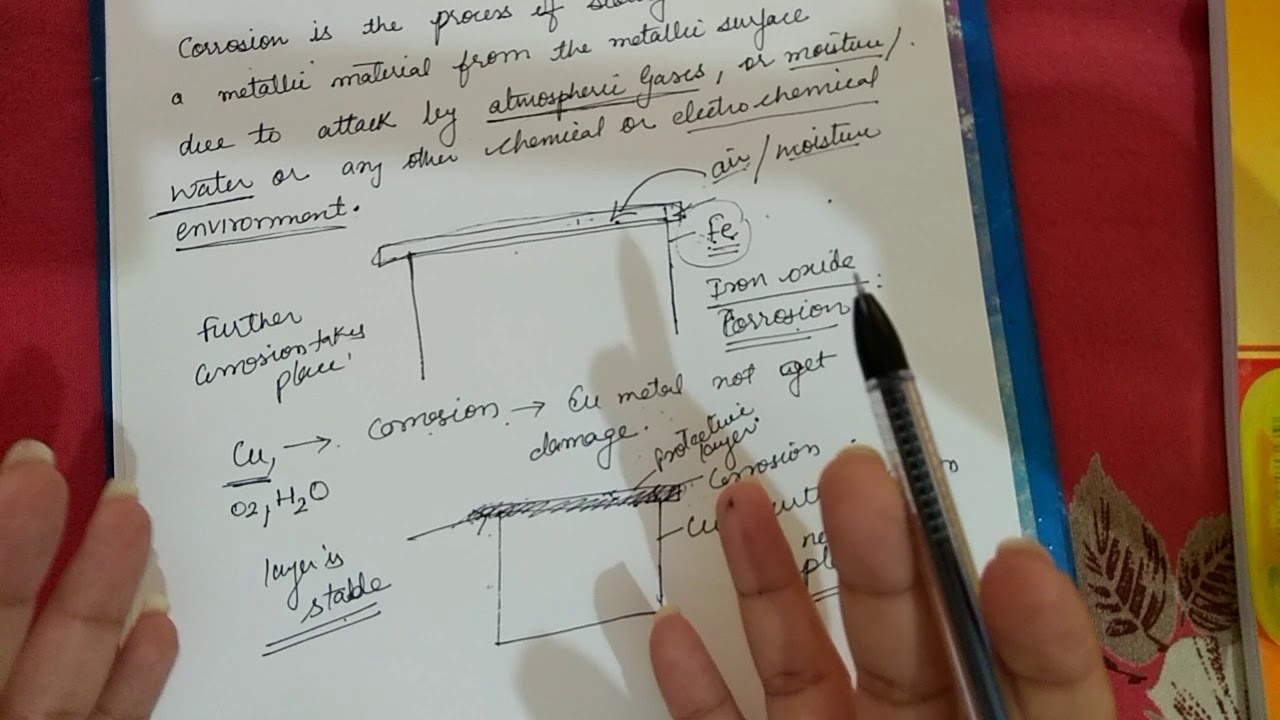 Corrosion is the process of
a metallic material from the metallic surface
due to attack by atmospheric gases, or moisture/.
water or any other chemical or electrochemical
environment.
air/moisture
fe
Iron oxide
Corrosion
further
corrosion takes
place
Cu, → corrosion → Cu metal not get
damage.
O2, H2O
protective
layer.
corrosion
Cu
layer is
stable